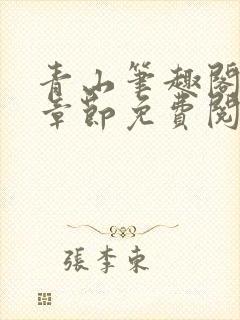 青山筆趣閣
章節免費閱
張李東